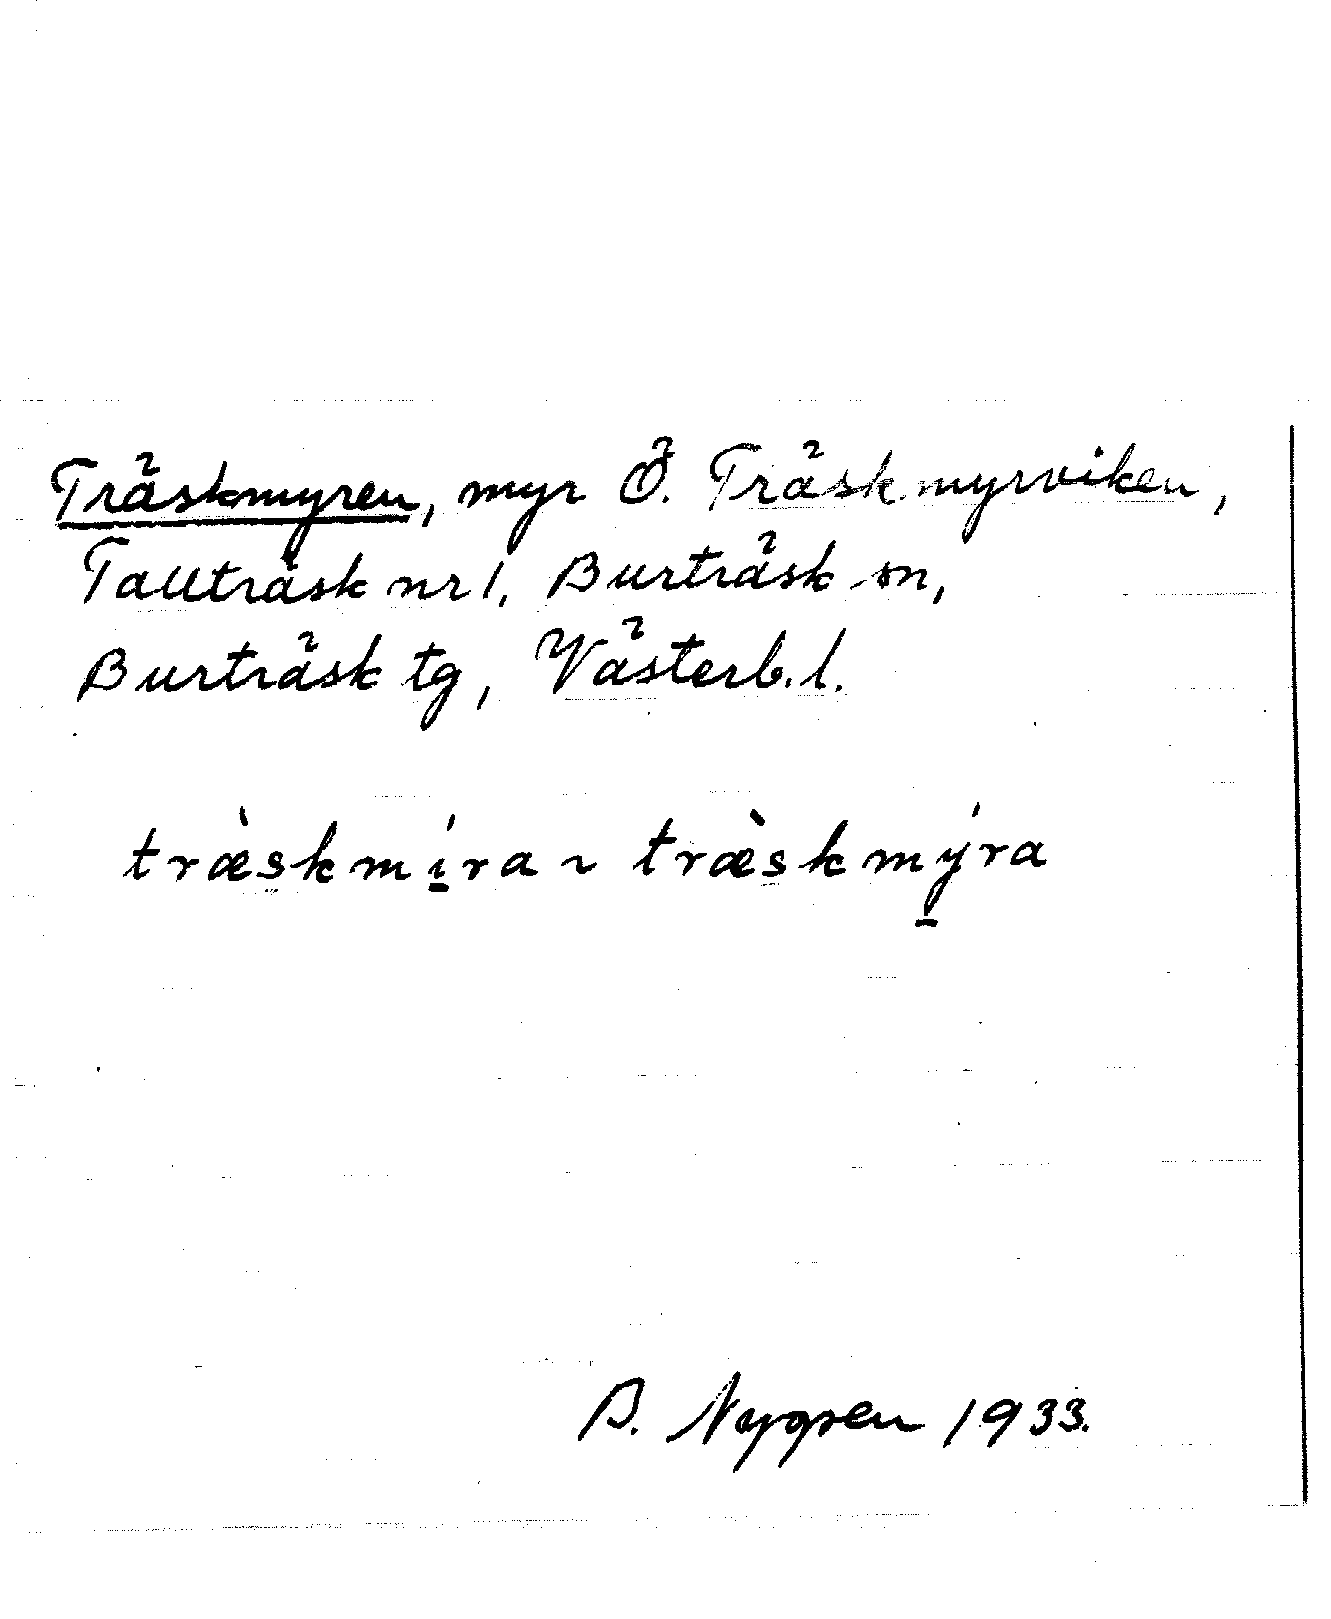 Träskmyren, myr Ö. Träskmyrviken,
Tallträsk nr 1, Burträsk sn,
Burträsk tg, Västerb. l.
træ̀skmí̱ra ~ træ̀skmý̱ra
B. Nygren 1933.